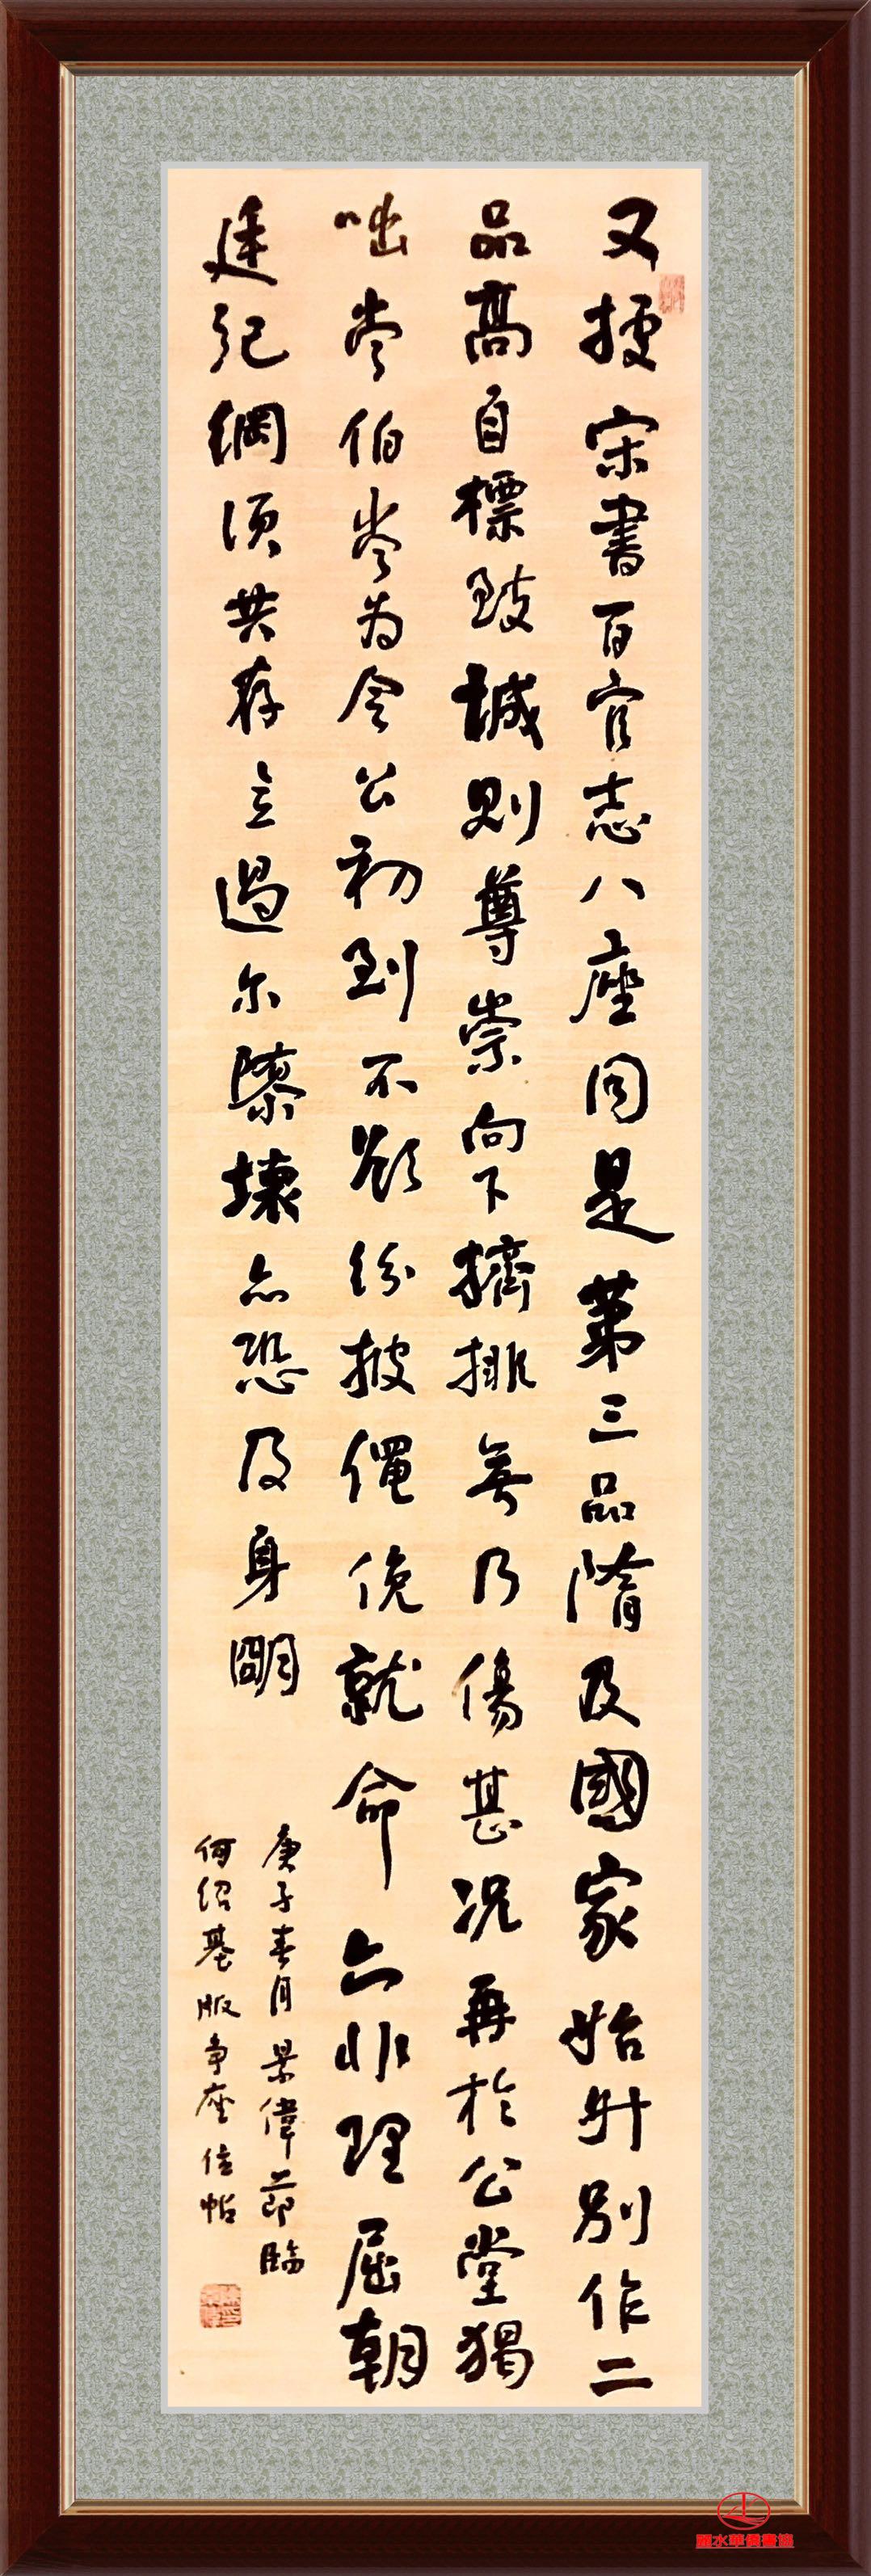 又據宋書百官志八座同是第三品隋及國家始升別作二
品高自標致誠則尊崇向下擠排無乃傷甚況再於公堂猲
咄常伯常为令公初到不欲紛披僶俛就命亦非理屈朝
廷紀綱須共存立過尔隳壞亦恐及身明
庚子春月景偉節臨
何紹基版争座位帖
麗水華偉書法